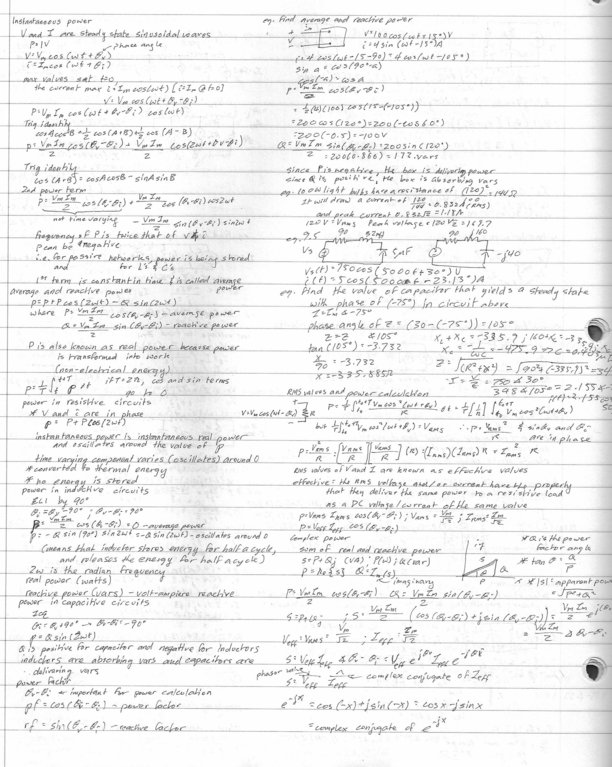 Instantaneous power
V and I are steady state sinusoidal waves
P=IV
V=Vm cos(wt+θv) phase angle
i=Im cos(wt+θi)
max values set t=0
the current max i=Im cos(wt) [i=Im @ t=0]
V=Vm cos(wt+θv-θi)
P=Vm Im cos(wt+θv-θi) cos(wt)
Trig identity
cosAcosB=½ cos(A+B)+½ cos(A-B)
P=VmIm/2 cos(θv-θi)+VmIm/2 cos(2wt+θv-θi)
Trig identity
cos(A+B)=cosAcosB-sinAsinB
2nd power term
P=VmIm/2 cos(θv-θi)+VmIm/2 cos(θv-θi)cos2wt
not time varying -VmIm/2 sin(θv-θi) sin2wt
frequency of P is twice that of v & i
P can be negative
i.e. for passive networks, power is being stored
and for L's & C's
1st term is constant in time & is called average power
average and reactive power
P=P+Pcos(2wt)-Q sin(2wt)
where P=VmIm/2 cos(θv-θi)-average power
Q=VmIm/2 sin(θv-θi)-reactive power
P is also known as real power because power
is transformed into work
(non-electrical energy)
cos and sin terms
go to 0
power in resistive circuits
* V and i are in phase
P=P+Pcos(2wt)
instantaneous power is instantaneous real power
and oscillates around the value of P
time varying component varies (oscillates) around 0
* converted to thermal energy
* no energy is stored
power in inductive circuits
ELI by 90°
θi=θv-90°; θv-θi=90°
P=VmIm/2 cos(θv-θi)=0-average power
P=-Q sin(90°) sin2wt=-Q sin(2wt)-oscillates around 0
(means that inductor stores energy for half a cycle,
and releases the energy for half a cycle)
2w is the radian frequency
real power (watts)
reactive power (vars)-volt-ampere reactive
power in capacitive circuits
ICE
θi=θv+90° → θv-θi=-90°
P=Q sin(2wt)
Q is positive for capacitor and negative for inductors
inductors are absorbing vars and capacitors are
delivering vars
power factor
θv-θi ← important for power calculation
pf=cos(θv-θi)-power factor
rf=sin(θv-θi)-reactive factor
eg. Find average and reactive power
V=100cos(wt+15°)V
i=4sin(wt-15°)A
i=4cos(wt-15-90)=4cos(wt-105°)
sin a=cos(90°-a)
cos(-a)=cosa
P=VmIm/2 cos(θv-θi)
=½(4)(100) cos(15-(-105°))
=200cos(120°)=200(-cos60°)
=200(-0.5)=-100V
Q=VmIm/2 sin(θv-θi)=200sin(120°)
=200(0.866)=173 vars
since P is negative, the box is delivering power
since Q is positive, the box is absorbing vars
eg. 100W light bulbs have a resistance of (120)²/100=144Ω
It will draw a current of 100/120=0.833A (rms)
and peak current 0.833√2=1.18A
120V=Vrms Peak voltage=120√2=169.7
eg. 9.5 90 32mH 90 160
Vs 5μF Vs -j40
Vs(t)=750cos(5000t+30°)V
i(t)=5cos(5000t-23.13°)A
eg. Find the value of capacitor that yields a steady state
with phase of (-75°) in circuit above
I=Im∡-75°
phase angle of Z=(30-(-75°))=105°
Z=Z∡105°
tan(105°)=-3.732
x/90=-3.732
x=-335.885Ω
RMS values and power calculation
V=Vm cos(wt+θv) R
θv and θi
are in phase
RMS values of V and I are known as effective values
effective: the RMS voltage and/or current have the property
that they deliver the same power to a resistive load
as a DC voltage/current of the same value
P=Vrms Irms cos(θv-θi); Vrms=Vm/√2; Irms=Im/√2
P=Veff Ieff cos(θv-θi)
complex power
sum of real and reactive power
S=P+Qj (VA); P(W); Q(var)
P=Re{S} Q=Im{S}
imaginary
if S Q θ P
* θ is the power
factor angle
* tan θ=Q/P
* |S|=apparent power
=√P²+Q²
P=VmIm/2 cos(θv-θi) Q=VmIm/2 sin(θv-θi)
S=P+Qj; S=VmIm/2 (cos(θv-θi)+j sin(θv-θi))=VmIm/2 e^j(θv-θi)
Veff=Vrms=Vm/√2; Ieff=Im/√2 =VmIm/2 ∡θv-θi
S=Veff Ieff ∡θv-θi=Veff Ieff e^jθv e^-jθi
phasor value
S=Veff Ieff ← complex conjugate of Ieff
e^-jx=cos(-x)+jsin(-x)=cosx-jsinx
=complex conjugate of e^-jx